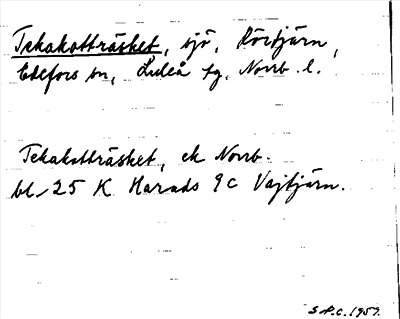 Tekakotträsket, sjö, Rörtjärn,
Edefors sn, Luleå fg, Norrb. l.
Tekakotträsket, ek Norrb.
bl. 25 K Harads 9c Vajtjärn.
S.P.C. 1957.